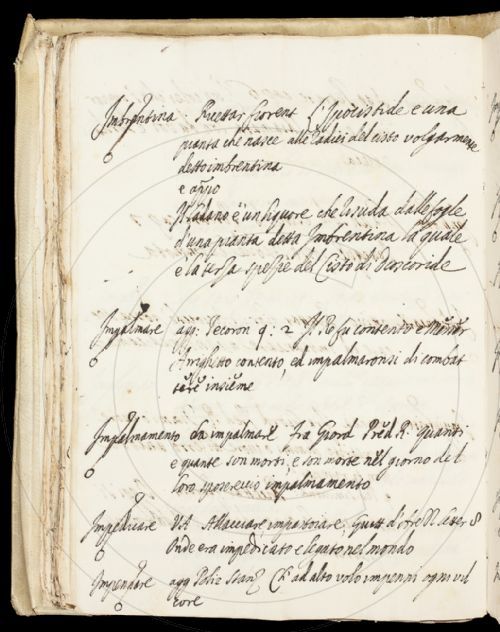 Imbrentina. Ricettar fiorent L'ipocistide e una
pianta che nasce alle radici del cisto volgarmente
detto imbrentina
e appo
Il ladano è un liquore che risuda dalle foglie
d'una pianta detta Imbrentina la quale
e la terza spezie del Cisto di Dioscoride
Impalmare agg: Pecoron g: 2 Il Re fu contento e
Arrighetto contento ed impalmaronsi di combat
tere insieme
Impalmamento da impalmare fra Giord Pred R. quanti
e quante son morti, e son morte nel giorno del
loro sposereccio impalmamento
Impedicare VA Allacciare, impastoiare, Guitt d'Are R. Letter 8
Onde era impedicato e legato nel mondo
Impennare agg Poliz Stanz Ch ad alto volo impenni ogni vil
core